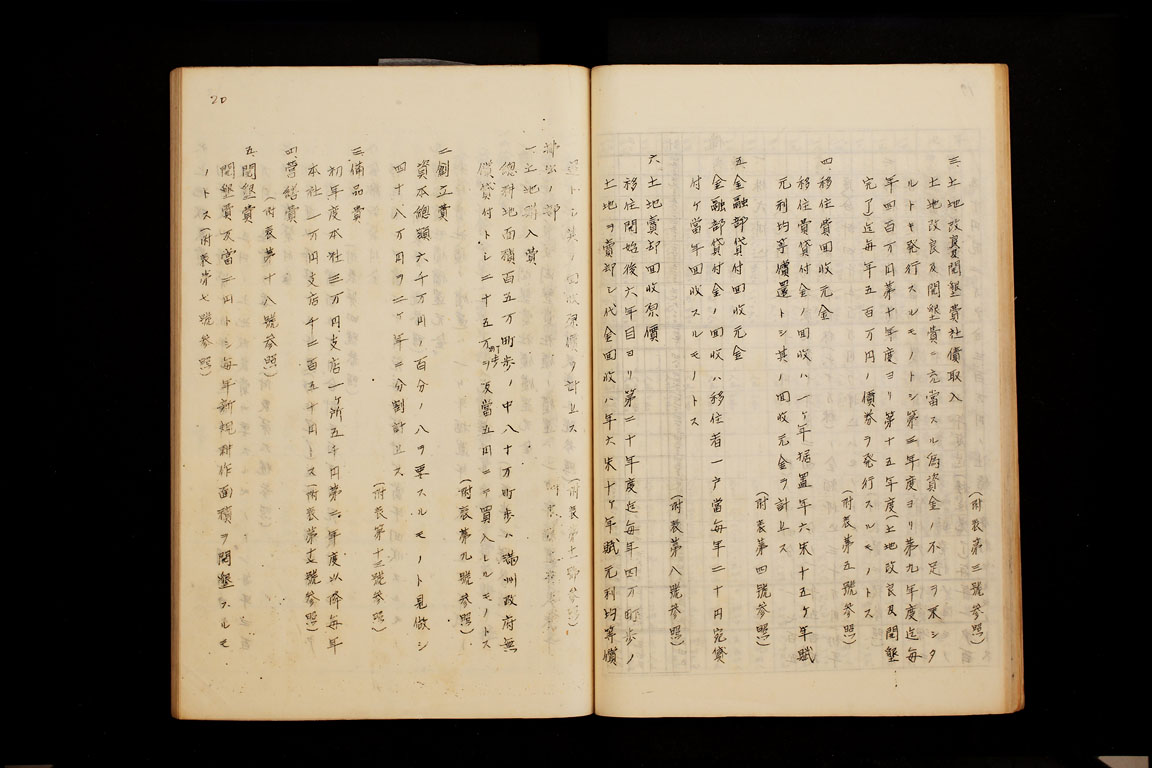 （附表第三號參照）
三、土地改良及開墾費社債收入
土地改良及開墾費ニ充當スル爲資金ノ不足ヲ來シタ
ルトキ發行スルモノトシ第三年度ヨリ第九年度迄每
年四百万円第十年度ヨリ第十五年度（土地改良及開墾
完了）迄每年五百万円ノ債券ヲ發行スルモノトス
（附表第五號參照）
四、移住費回收元金
移住費貸付金ノ回收ハ一ヶ年据置年六朱十五ヶ年賦
元利均等償還トシ其ノ回收元金ヲ計上ス
（附表第四號參照）
五、金融部貸付回收元金
金融部貸付金ノ回收ハ移住者一戶當每年二十円宛貸
付ケ當年回收スルモノトス
（附表第八號參照）
六、土地賣却回收原價
移住開始後六年目ヨリ第二十年度迄每年四万町步ノ
土地ヲ賣却シ代金回收ハ年六朱十ヶ年賦元利均等償
20
還トシ其ノ回收原價ヲ計上ス（附表第十一號參照）
拂出ノ部
一、土地購入費
總耕地面積百五万町步ノ中八十万町步ハ滿州政府無
償貸付トシ二十五万町步ヲ反當五円ニテ買入レルモノトス
（附表第九號參照）
二、創立費
資本總額六千万円ノ百分ノ八ヲ要スルモノト見做シ
四十八万円ヲ二ヶ年ニ分割計上ス
（附表第十三號參照）
三、備品費
初年度本社三万円支店一ヶ所五千円第二年度以降每年
本社一万円支店千二百五十円トス（附表第十五號參照）
四、營繕費
（附表第十八號參照）
五、開墾費
開墾費反當二円トシ每年新規耕作面積ヲ開墾スルモ
ノトス（附表第七號參照）